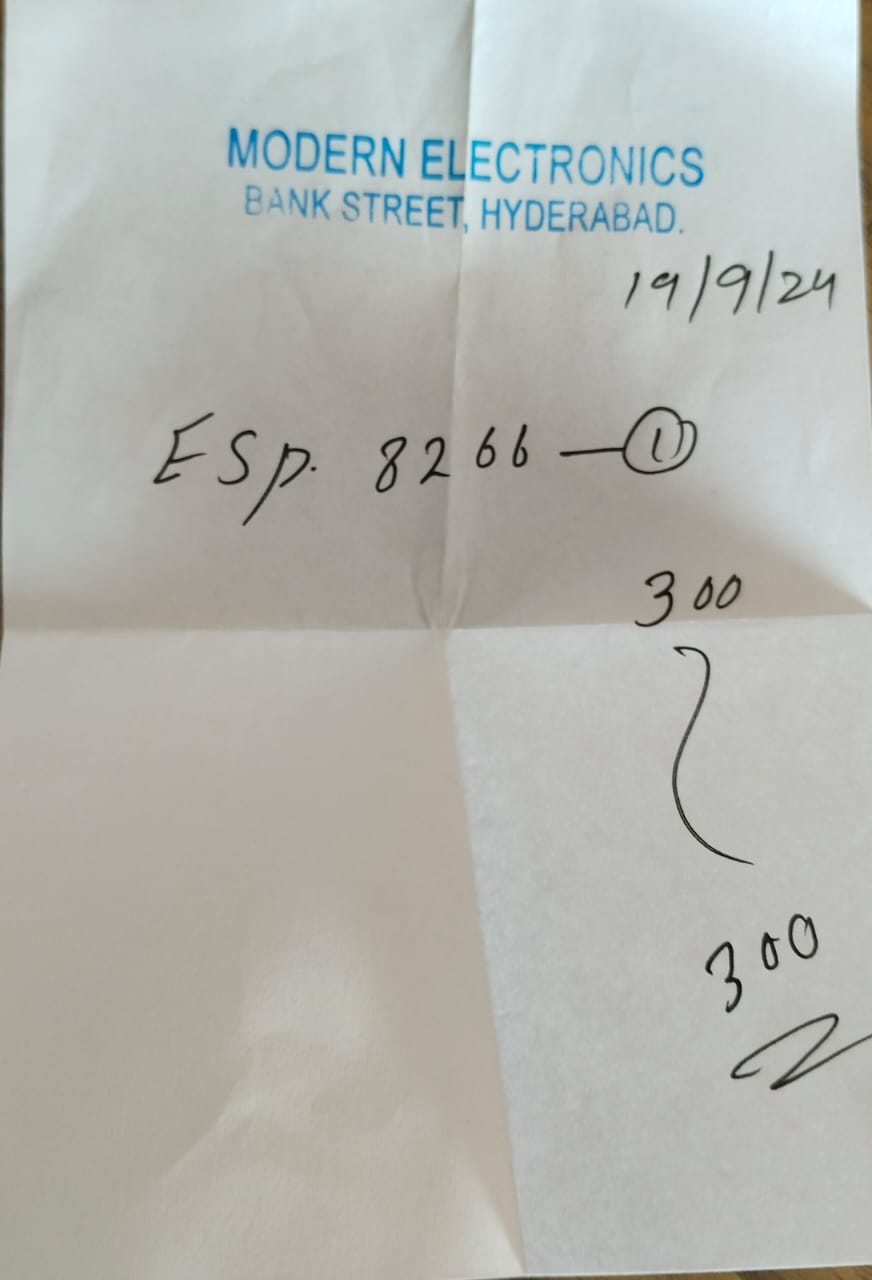 MODERN ELECTRONICS
BANK STREET, HYDERABAD.
19/9/24
ESp. 8266 — 1
300
300